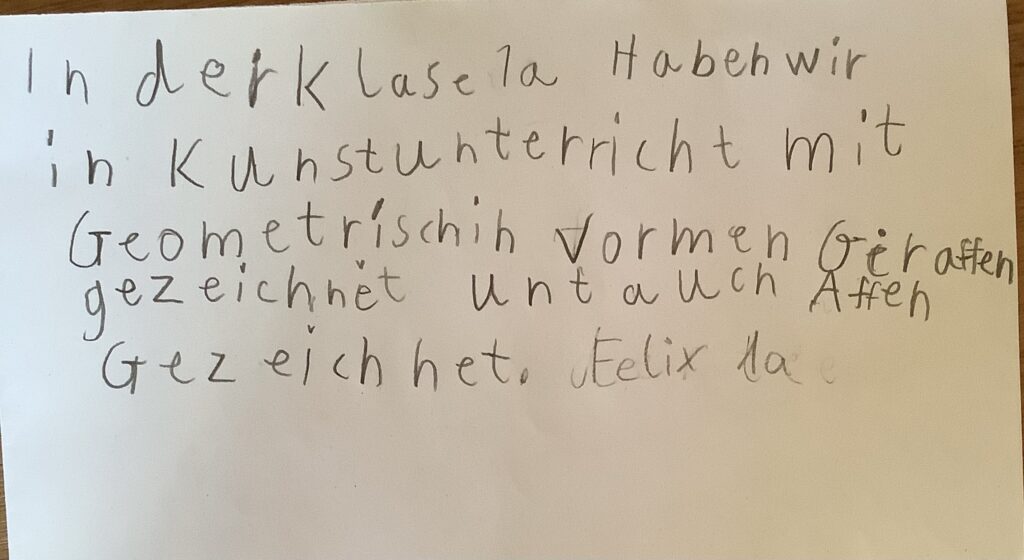 In der klase 1a Haben wir
in Kunstunterricht mit
Geometrischin Vormen Geraffen
gezeichnet unt auch Affen
Gezeichnet. Felix 1a